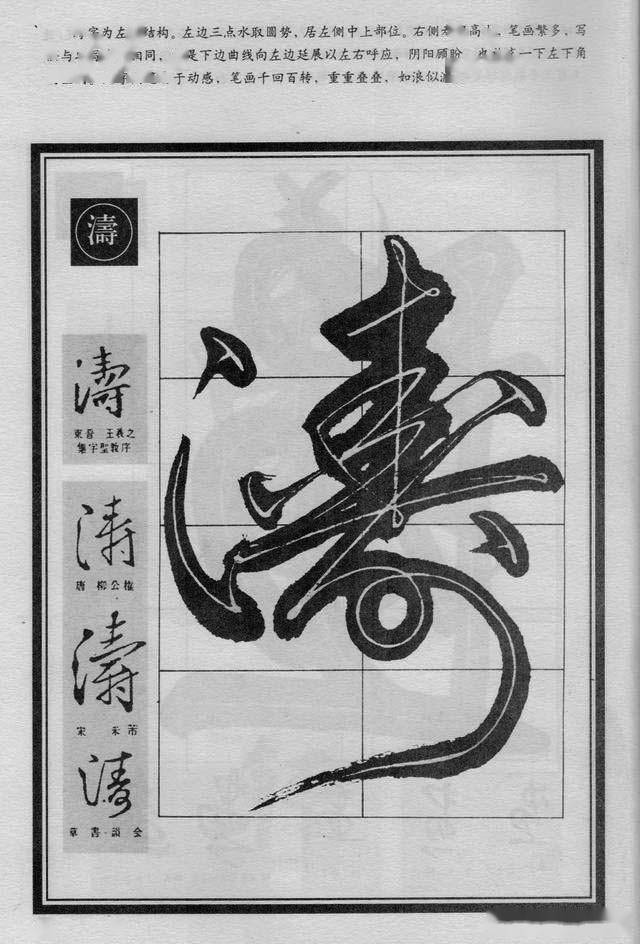 字为左 结构。左边三点水取圆势，居左侧中上部位。右侧 高 ，笔画繁多，写
与 相同， 是下边曲线向左边延展以左右呼应，阴阳顾盼 一下左下角
于动感，笔画千回百转，重重叠叠，如浪似
濤
濤
濤
東晉 王羲之
集字聖教序
涛
唐 柳公權
濤
宋 米芾
濤
草書韻會